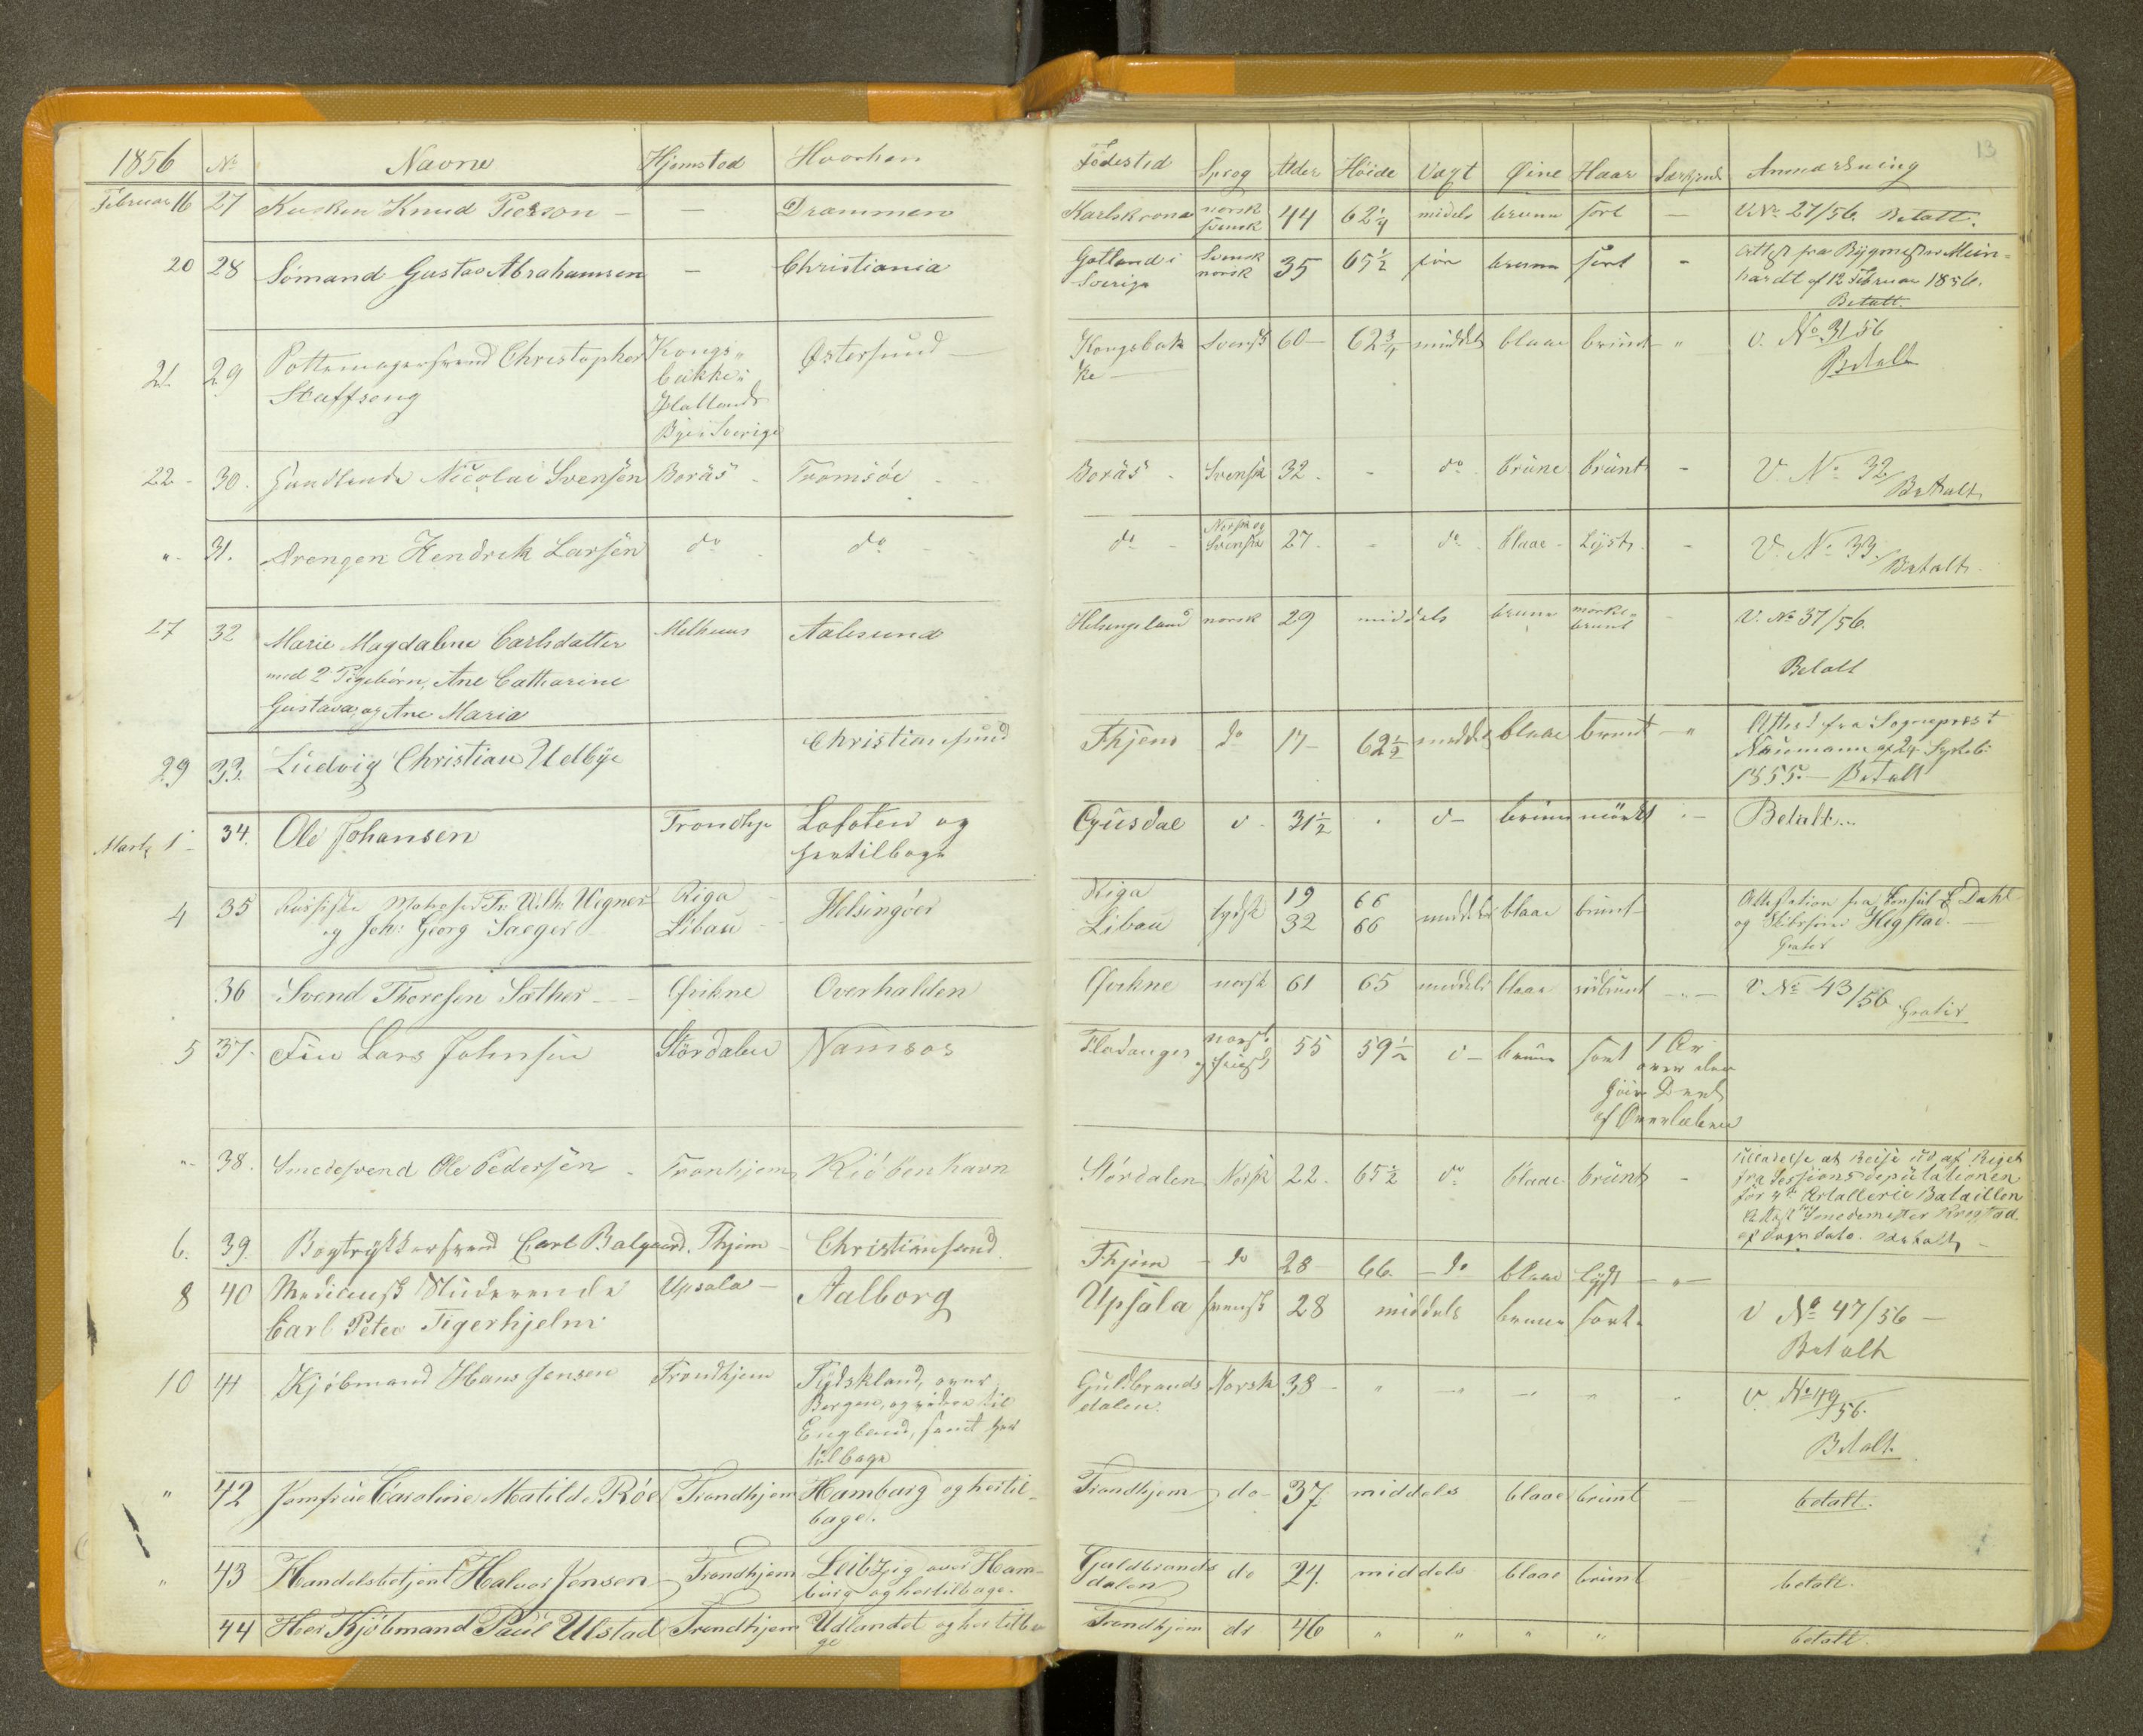 13
1856 No Navne Hjemsted Hvorhen Fødested Sprog Alder Høide Vext Øine Haar Særkjende Anmærkning
Februar 16 27 Kusken Knud Pierson — — Drammen Karlskrona norsk svensk 44 62 1/4 midels brune sort — V. No 27/56. Betalt.
20 28 Sömand Gustav Abrahamsen — Christiania Gotland i Sverige Svensk norsk 35 65 1/2 før brune sort - Attest fra Bygmester Mein-
hardt af 12 Februar 1856.
Betalt.
21. 29 Pottemagersvend Christopher Kongs" Østersund Kongsbak Svensk 60 — 62 3/4 middels blaae brunt " v. No 31 56
Staffseng bakke i ke — Betalt
Hallands
Bye i Sverige
22 - 30. Handlende Nicolai Svensen Borås - Tromsöe - Borås - Svensk 32 - - do brune brunt - V. No 32/ Betalt
" - 31. Drengen Hendrik Larsen do - do - do - Norsk og Svensk 27. - do - blaae - Lyst. - V. No 33/ Betalt.
27 32 Marie Magdalene Carlsdatter Melhuus Aalesund Helsingeland norsk 29 middels brune mørke" brunt - V. No 37/56.
med 2 Pigebörn, Ane Catharine Betalt
Gustava, og Ane Maria
29 33. Ludvig Christian Uelbye Christiansund Thjem do 17 — 62 1/2 middels blaae brunt — " Attest fra Sogneprest
Naumann af 24 Septeb:
1855. — Betalt
Marts 1 - 34. Ole Johansen Trondhj Lofoten og Gusdal 31 1/2 brune mörkt Betalt..
hertilbage
4 35 Russiske Matroser Fr. Wilh. Wegner Riga Helsingöer Riga tydsk 19 66 middels blaae brunt Attestation fra Consul Dahl
og Joh: Georg Saeger Libau Libau 32 66 og Skibsfører Hegstad. —
Gratis
36 Svend Thoresen Sæther — Qvikne Overhalden Qvikne norsk 61 65 middels blaae — " — V No 43/56 Gratis
5 37. Fin Lars Johnsen Stördalen Namsos norsk og 55 59 1/2 brune sort 1 Ar
over den
høire Deel
af Overlæben
" - 38. Smedesvend Ole Pedersen - Tronhjem Kiöbenhavn Stördalen Norsk 22 - 65 1/2 do blaae brunt - Tilladelse at Reise ud af Riget
fra Sessionsdeputationen
for 4de Artallerie Bataillon
Attest fra Smedemester Krogstad
af dags dato. Betalt
6. 39. Bogtrykkersvend Carl Balgaard. Thjem — Christiansund Thjem - do 28 66. - do blaae lyst — " —
8 40 Medicinsk Studerende Upsala — Aalborg Upsala svensk 28 middels brune sort. V No 47/56 —
Carl Peter Tigerhjelm Betalt
10 41 Kjöbmand Hans Jensen Trondhjem Tydskland, over Guldbrands Norsk 38 — " — " — " " " V. No 49/56.
Bergen, og videre til dalen. Betalt.
England, samt her
tilbage
" 42 Jomfrue Caroline Matilde Röe Trondhjem Hamburg og hertil- Trondhjem do - 37 middels blaae brunt betalt.
bage.
" 43 Handelsbetjent Halvor Jensen Trondhjem Leibzig over Ham- Guldbrands do 24. middels blaae brunt betalt.
burg og hertilbage. dalen
44 Herr Kjöbmand Paul Ulstad Trondhjem Udlandet og hertilba Trondhjem do 46 " " " " betalt.
ge